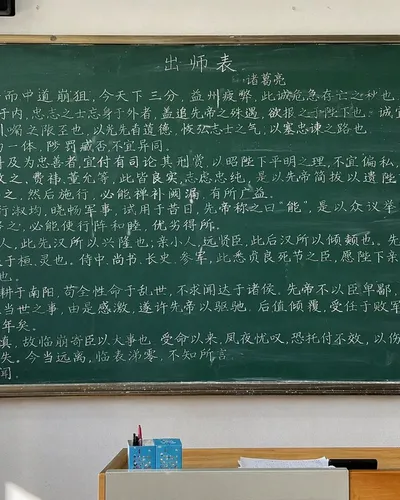 出师表
诸葛亮
而中道崩殂，今天下三分，益州疲弊，此诚危急存亡之秋也
于内，忠志之士忘身于外者，盖追先帝之殊遇，欲报之于陛下也。诚宜
以光先帝遗德，恢弘志士之气，以塞忠谏之路也
一体，陟罚臧否，不宜异同。
及为忠善者，宜付有司论其刑赏，以昭陛下平明之理，不宜偏私，
之，费祎、董允等，此皆良实，志虑忠纯，是以先帝简拔以遗陛
之，然后施行，必能裨补阙漏，有所广益。
行淑均，晓畅军事，试用于昔日，先帝称之曰“能”，是以众议举
之，必能使行阵和睦，优劣得所。
人，此先汉所以兴隆也，亲小人，远贤臣，此后汉所以倾颓也。先
于桓、灵也。侍中、尚书、长史、参军，此悉贞良死节之臣，愿陛下亲
也。
耕于南阳，苟全性命于乱世，不求闻达于诸侯。先帝不以臣卑鄙，
以当世之事，由是感激，遂许先帝以驱驰。后值倾覆，受任于败军
年矣。
慎，故临崩寄臣以大事也。受命以来，夙夜忧叹，恐托付不效，以伤
失。今当远离，临表涕零，不知所言
闻